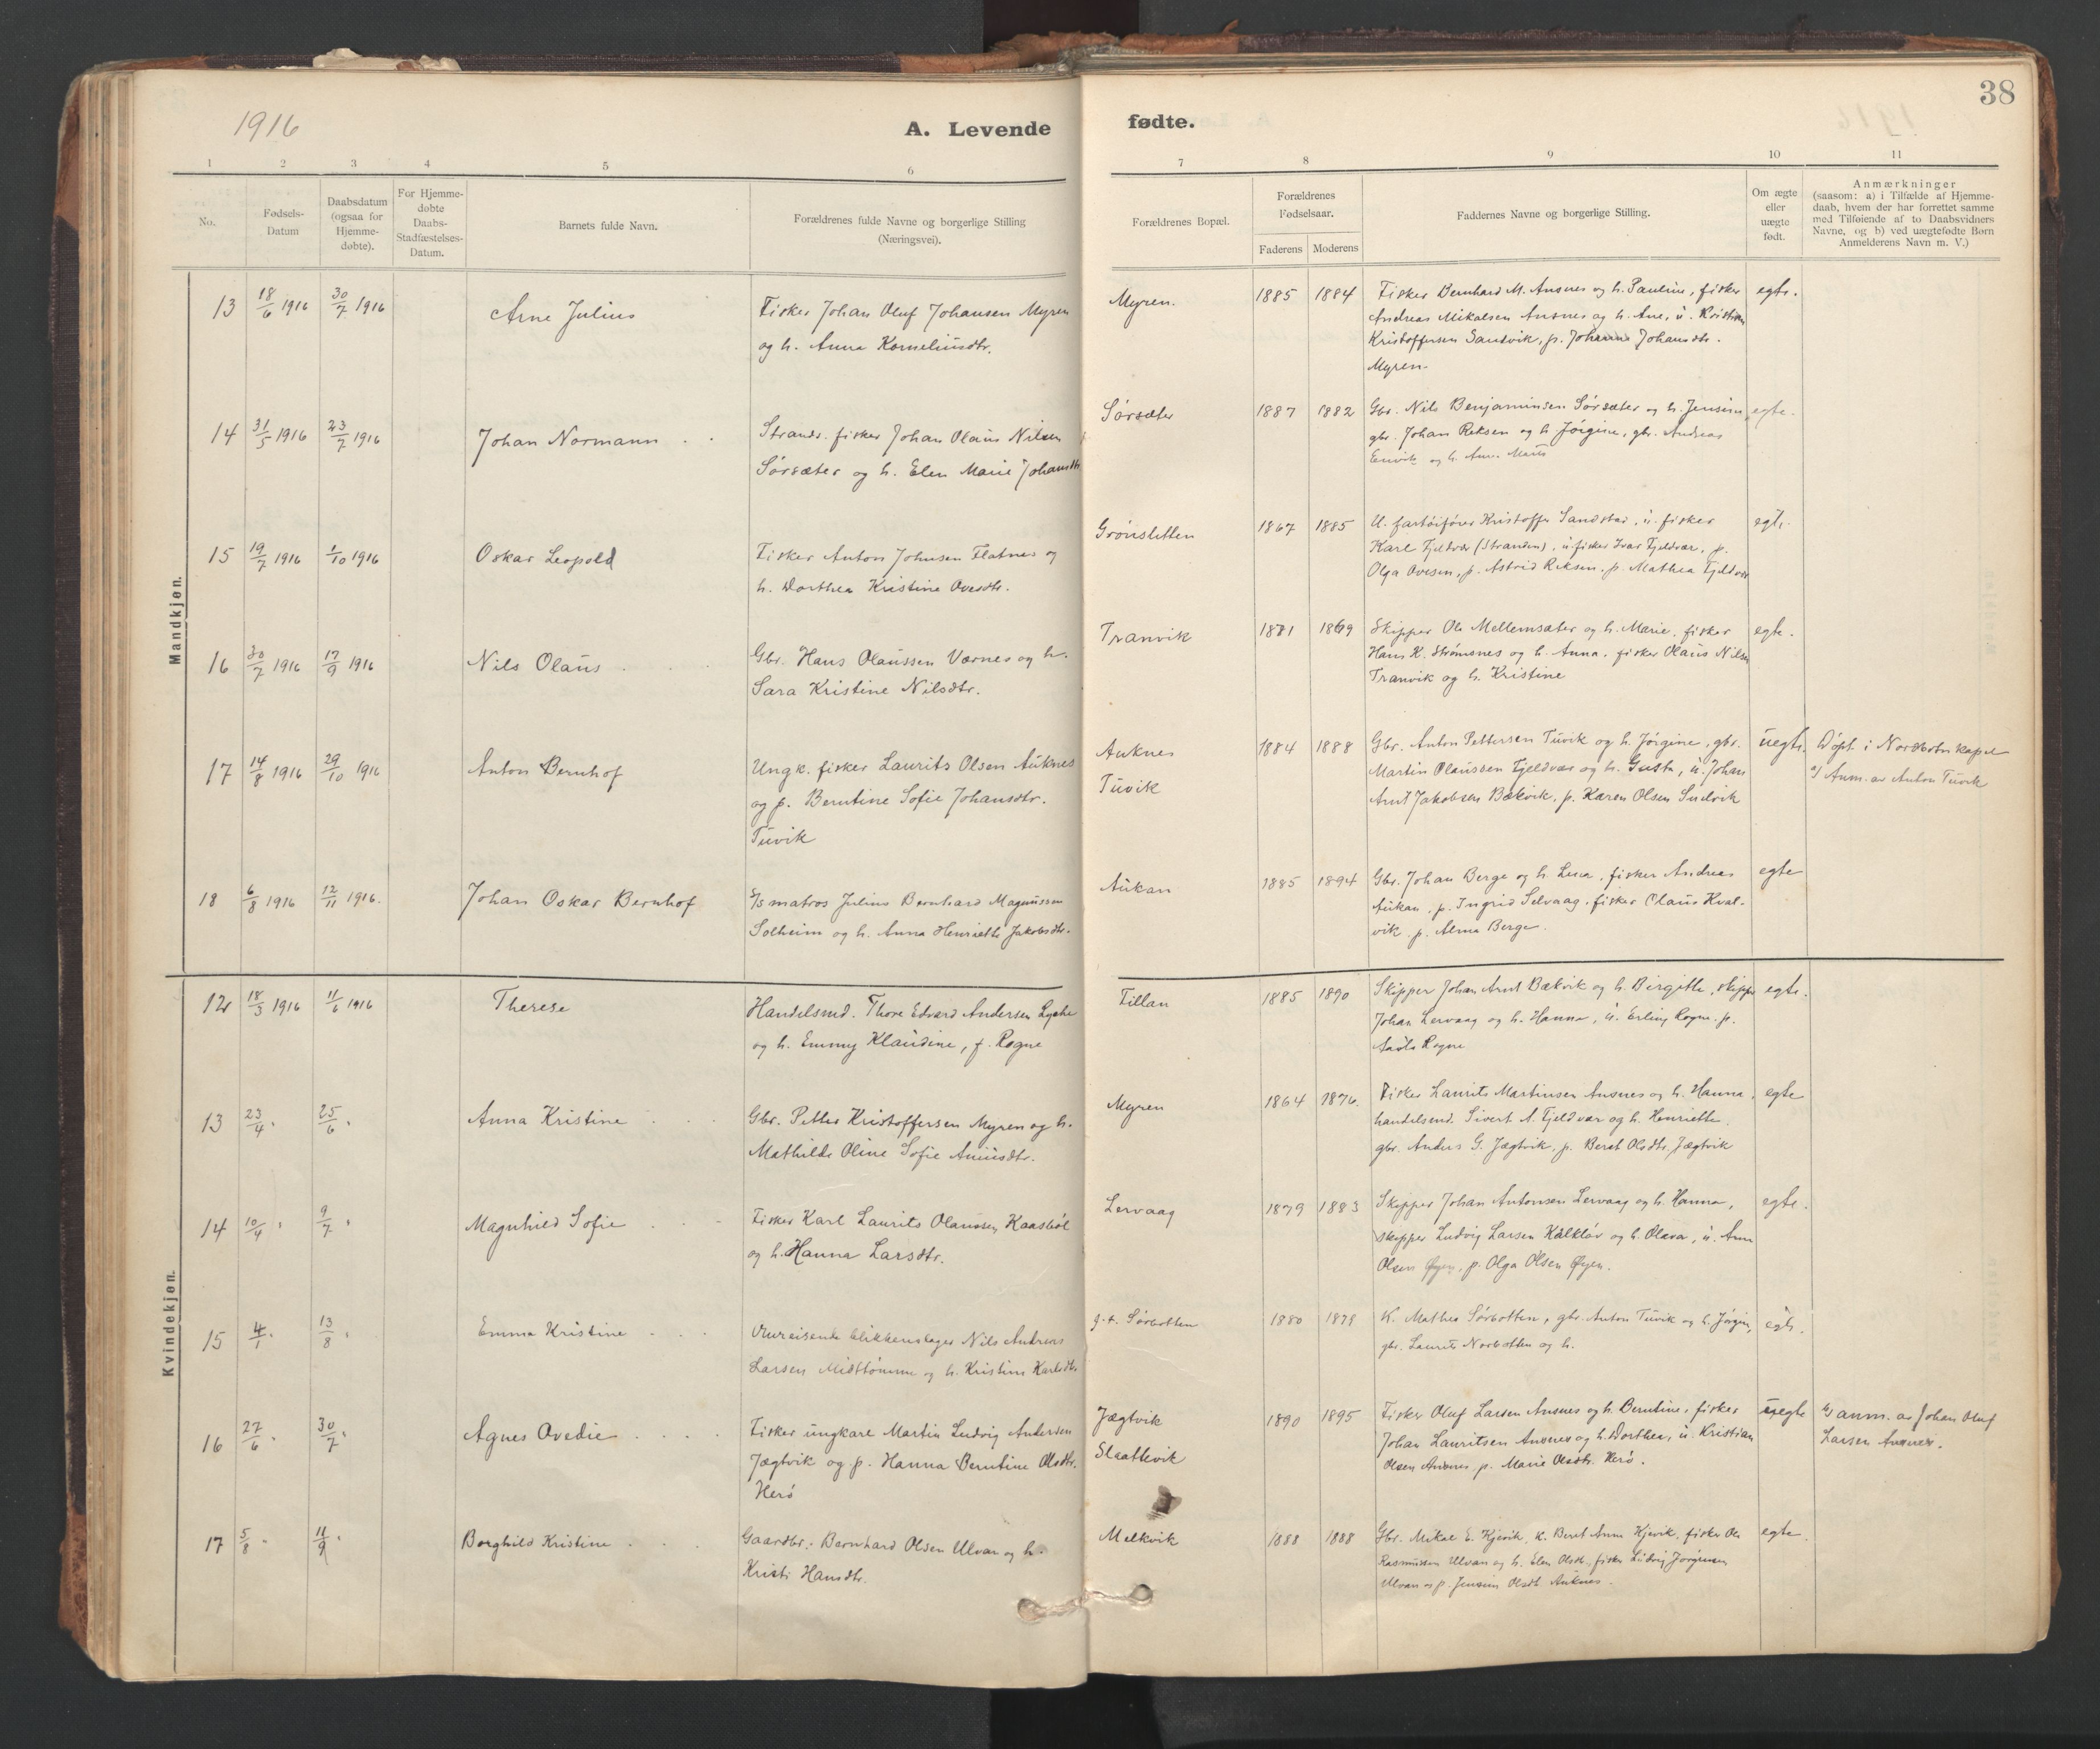 1916
A. Levende fødte.
38
1 2 3 4 5 6 7 8 9 10 11
No.
Fødsels-
Datum
Daabsdatum
(ogsaa for
Hjemme-
døbte).
For Hjemme-
døbte
Daabs-
Stadfæstelses-
Datum.
Barnets fulde Navn.
Forældrenes fulde Navne og borgerlige Stilling
(Næringsvei).
Forældrenes Bopæl.
Forældrenes
Fødselsaar.
Faderens Moderens
Faddernes Navne og borgerlige Stilling.
Om ægte
eller
uægte
født.
Anmærkninger
(saasom: a) i Tilfælde af Hjemme-
daab, hvem der har forrettet samme
med Tilføiende af to Daabsvidners
Navne, og b) ved uægtefødte Børn
Anmelderens Navn m. V.)
Mandkjøn.
13 18/6 1916 30/7 1916 Arne Julius
Fisker Johan Oluf Johansen Myren
og h. Anna Korneliusdtr.
Myren. 1885 1884
Fisker Bernhard M. Ansnes og h. Pauline, fisker
Andreas Mikalsen Ansnes og h. Ane, u. Kristian
Kristoffersen Sandvik, p. Johanna Johansdtr.
Myren.
egte.
14 31/5 1916 23/7 1916 Johan Normann
Strands. fisker Johan Olaus Nilsen
Sørsæter og h. Elen Marie Johansdtr
Sørsæter 1887 1882
Gbr. Nils Benjaminsen Sørsæter og h. Jensine
gbr. Johan Reksen og h. Jørgine, gbr. Andreas
og h. Marie
egte.
15 19/7 1916 1/10 1916 Oskar Leopold
Fisker Anton Johnsen Flatnes og
h. Dorthea Kristine Ovesdtr.
Grønsletten 1867 1885
U. fartøifører Kristoffer Sandstad, u. fisker
Karl Fjeldvær (Stranden), u. fisker Ivar Fjeldvær, p.
Olga Ovesen, p. Astrid Reksen, p. Mathea Fjeldvær
egte.
16 30/7 1916 17/9 1916 Nils Olaus
Gbr. Hans Olaussen Værnes og h.
Sara Kristine Nilsdtr.
Tranvik 1871 1869
Skipper Ole Mellemsæter og h. Marie, fisker
Hans K. Strømsnes og h. Anna, fisker Olaus Nilsen
Tranvik og h. Kristine
egte.
17 14/8 1916 29/10 1916 Anton Bernhof
Ungk. fisker Laurits Olsen Auknes
og p. Berntine Sofie Johansdtr.
Tuvik
Auknes
Tuvik
1884 1888
Gbr. Anton Pettersen Tuvik og h. Jørgine, gbr.
Martin Olaussen Fjeldvær og h. Gusta, u. Johan
Arnt Jakobsen Bækvik, p. Karen Olsen
uegte. Døpt i Nordbotn kapel
Anm. av Anton Tuvik
18 6/8 1916 12/11 1916. Johan Oskar Bernhof
S/S matros Julius Bernhard Magnussen
Solheim og h. Anna Henriette Jakobsdtr.
Aukan 1885 1894
Gbr. Johan Berge og h. Lina, fisker Andreas
Aukan, p. Ingrid Selvaag, fisker Olaus Kval-
vik, p. Alma Berge.
egte
Kvindekjøn.
12 18/3 1916 11/6 1916 Therese
Handelsmd. Thore Edvard Andersen Lyche
og h. Emmy Klaudine, f. Rogne
Fillan 1885 1890
Skipper Johan Arnt Bækvik og h. Birgitte, skipper
Johan Lervaag og h. Hanna, u. Erling Rogne, p.
Rogne
egte.
13 23/4 " 25/6 " Anna Kristine
Gbr. Petter Kristoffersen Myren og h.
Mathilde Oline Sofie
Myren 1864 1876.
Fisker Laurits Martinsen Ansnes og h. Hanna,
handelsmd. Sivert A. Fjeldvær og h. Henriette,
gbr. Anders G. Jægtvik, p. Beret Olsdtr. Jægtvik
egte
14 10/4 " 9/7 " Magnhild Sofie
Fisker Karl Laurits Olaussen Kaasbøl
og h. Hanna Larsdtr.
Lervaag 1879 1883
Skipper Johan Antonsen Lervaag og h. Hanna,
skipper Ludvig Larsen Kalkløv og h. Olava, u. Arne
Olsen Øyen, p. Olga Olsen Øyen.
egte.
15 4/1 " 13/8 " Emma Kristine
Omreisende blikkenslager Nils Andreas
Larsen Midttømme og h. Kristine Karlsdtr
g.t. Sørbotten 1880 1878
K. Mathea Sørbotten, gbr. Anton Tuvik og h. Jørgine,
gbr. Laurits Norbotten og h.
egte.
16 27/6 " 30/7 " Agnes Ovedie
Fisker ungkare Martin Ludvig Andersen
Jægtvik og p. Hanna Berntine Olsdtr.
Herø
Jægtvik
Slaattevik
1890 1895
Fisker Oluf Larsen Ansnes og h. Berntine, fisker
Johan Lauritsen Ansnes og h. Dorthea, u. Kristian
Olsen Ansnes, p. Marie Olsdtr. Herø.
uegte anm. av Johan Oluf
Larsen Ansnes.
17 5/8 " 11/9 " Borghild Kristine
Gaardbr. Bernhard Olsen Ulvan og h.
Kristi Hansdtr.
Melkvik 1888 1888
Gbr. Mikal E. Kjervik, k. Beret Anna Kjervik, fisker Ole
Rasmussen Ulvan og h. Elen Olsdtr., fisker Ludvig Jørgensen
Ulvan og p. Jensine Olsdtr. Auknes.
egte.